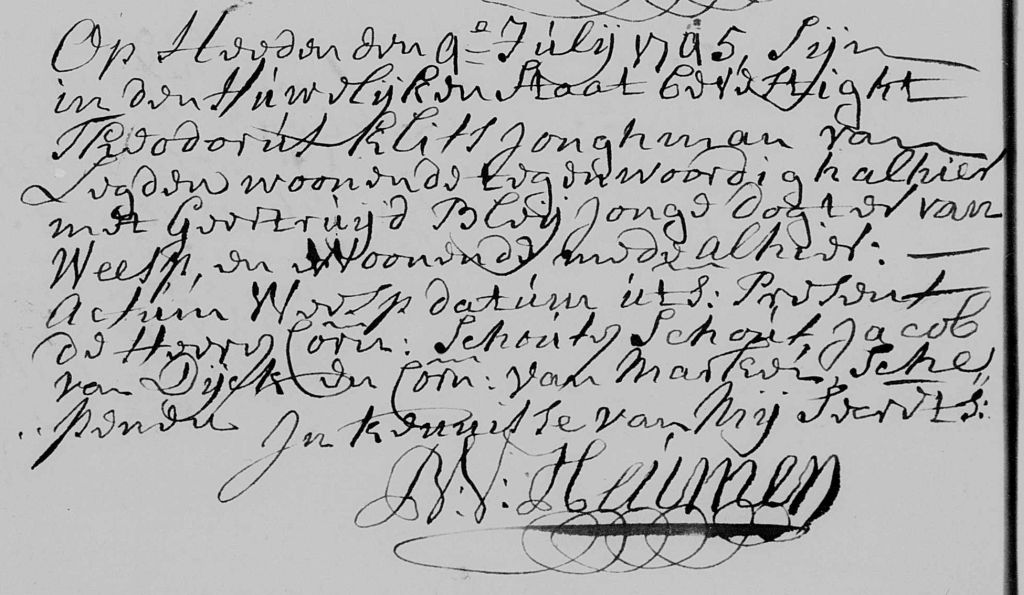 Op Heeden den 9e Júlij 1795, Sijn
in den Húwelijken Staat bevestight
Theodorus Klits Jonghman van
Legden woonende tegenwoordigh alhier
met Geertrúijd Bleij Jonge dogter van
Weesp, en Woonende mede alhier: —
Actúm Weesp datúm úts: Present
de Heere Corn: Schouts Schoút, Jacob
van Dijck en Corn: van Marken, Sche,
penen
In kennisse van Mij Secrets:
V: Heúmen